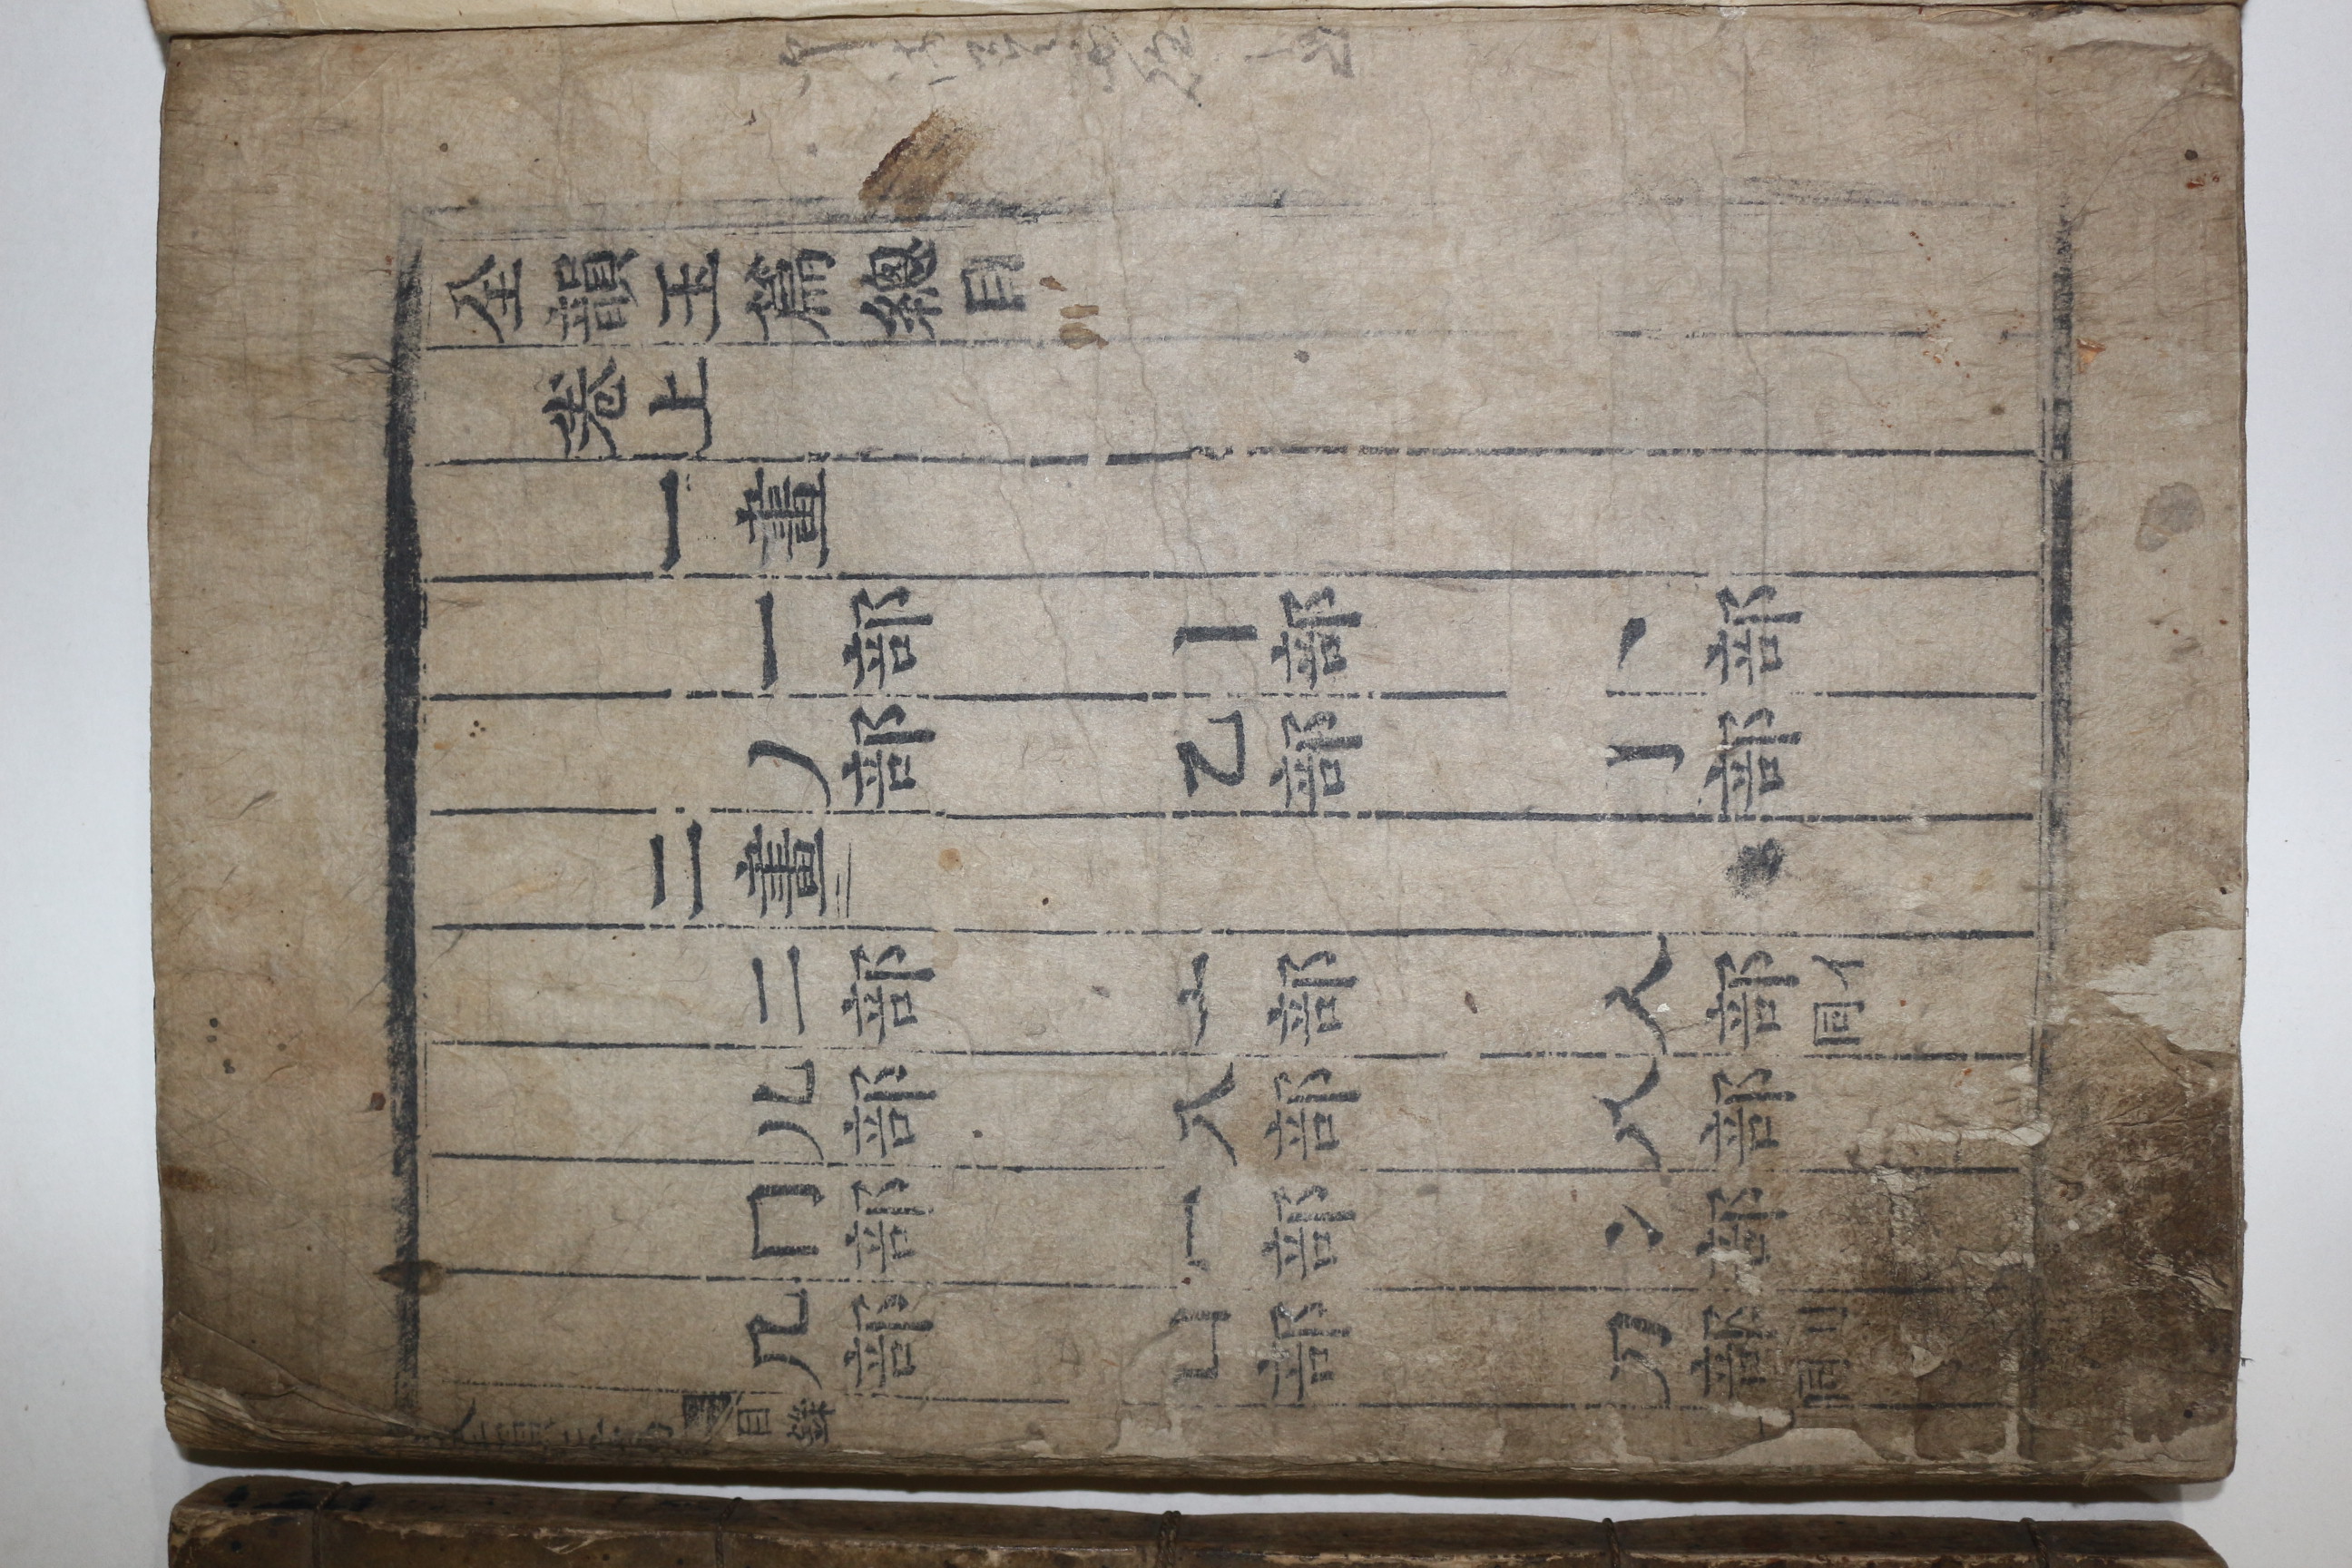 全韻玉篇總目
卷上
一畫
一部 丨部 丶部
丿部 乙部 亅部
二畫
二部 亠部 人部 同亻
儿部 入部 八部
冂部 冖部 冫部
几部 凵部 刀部 同刂
目錄